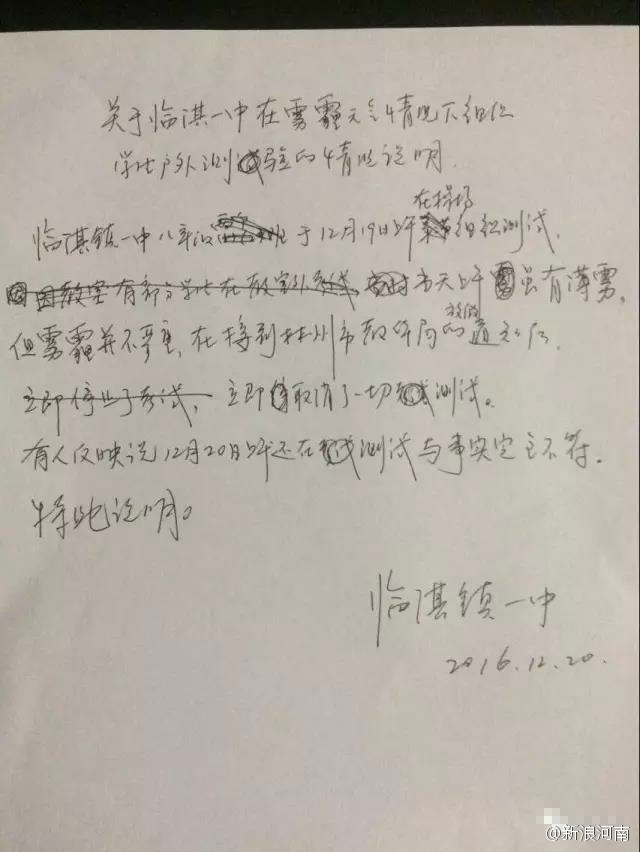 关于临淇一中在雾霾天气情况下组织
学生户外测验的情况说明.
在操场
临淇镇一中八年级 于12月19日上午 组织测试,
因教室有部分学生在教室外考试, 当天上午 虽有薄雾,
放假
但雾霾并不严重, 在接到林州市教体局的通知后,
立即停止了考试, 立即取消了一切 测试。
有人反映说12月20日上午还在 测试与事实完全不符.
特此说明。
临淇镇一中
2016.12.20.
@新浪河南